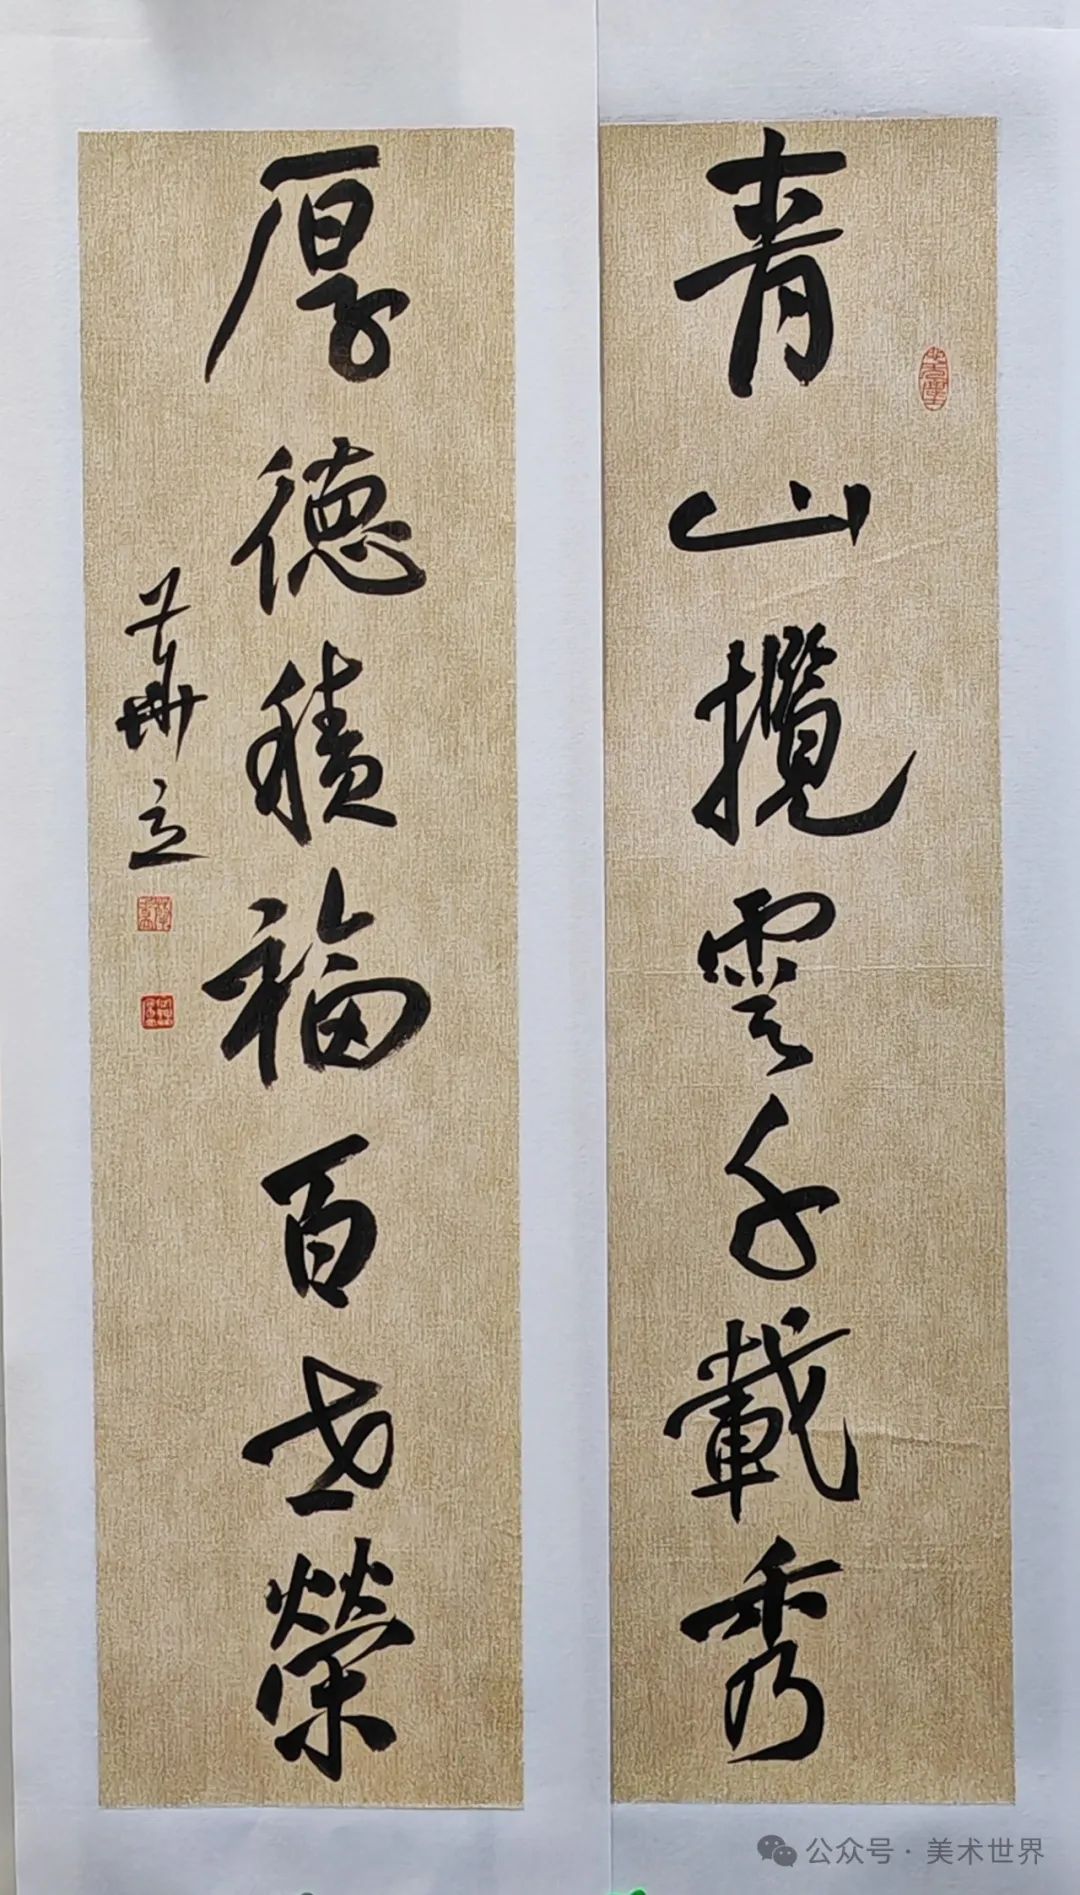 青山攬雲千載秀
厚德積福百世榮
公众号·美术世界